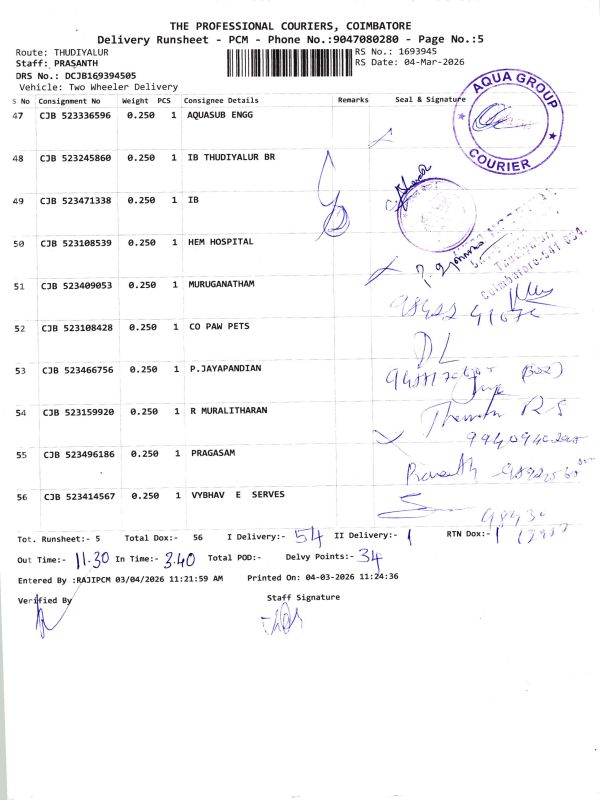 THE PROFESSIONAL COURIERS, COIMBATORE
Delivery Runsheet - PCM - Phone No.:9047080280 - Page No.:5
Route: THUDIYALUR
RS No.: 1693945
Staff: PRASANTH
RS Date: 04-Mar-2026
DRS No.: DCJB169394505
Vehicle: Two Wheeler Delivery
S No Consignment No Weight PCS Consignee Details Remarks Seal & Signature
AQUA GROUP
COURIER
47 CJB 523336596 0.250 1 AQUASUB ENGG
48 CJB 523245860 0.250 1 IB THUDIYALUR BR
49 CJB 523471338 0.250 1 IB
50 CJB 523108539 0.250 1 HEM HOSPITAL
Coimbatore-641 034.
51 CJB 523409053 0.250 1 MURUGANATHAM
52 CJB 523108428 0.250 1 CO PAW PETS
DL
53 CJB 523466756 0.250 1 P.JAYAPANDIAN
54 CJB 523159920 0.250 1 R MURALITHARAN
55 CJB 523496186 0.250 1 PRAGASAM
56 CJB 523414567 0.250 1 VYBHAV E SERVES
Tot. Runsheet:- 5 Total Dox:- 56 I Delivery:- 54 II Delivery:- 1 RTN Dox:- 1
Out Time:- 11.30 In Time:- 3.40 Total POD:- Delvy Points:- 34
Entered By :RAJIPCM 03/04/2026 11:21:59 AM Printed On: 04-03-2026 11:24:36
Verified By
Staff Signature